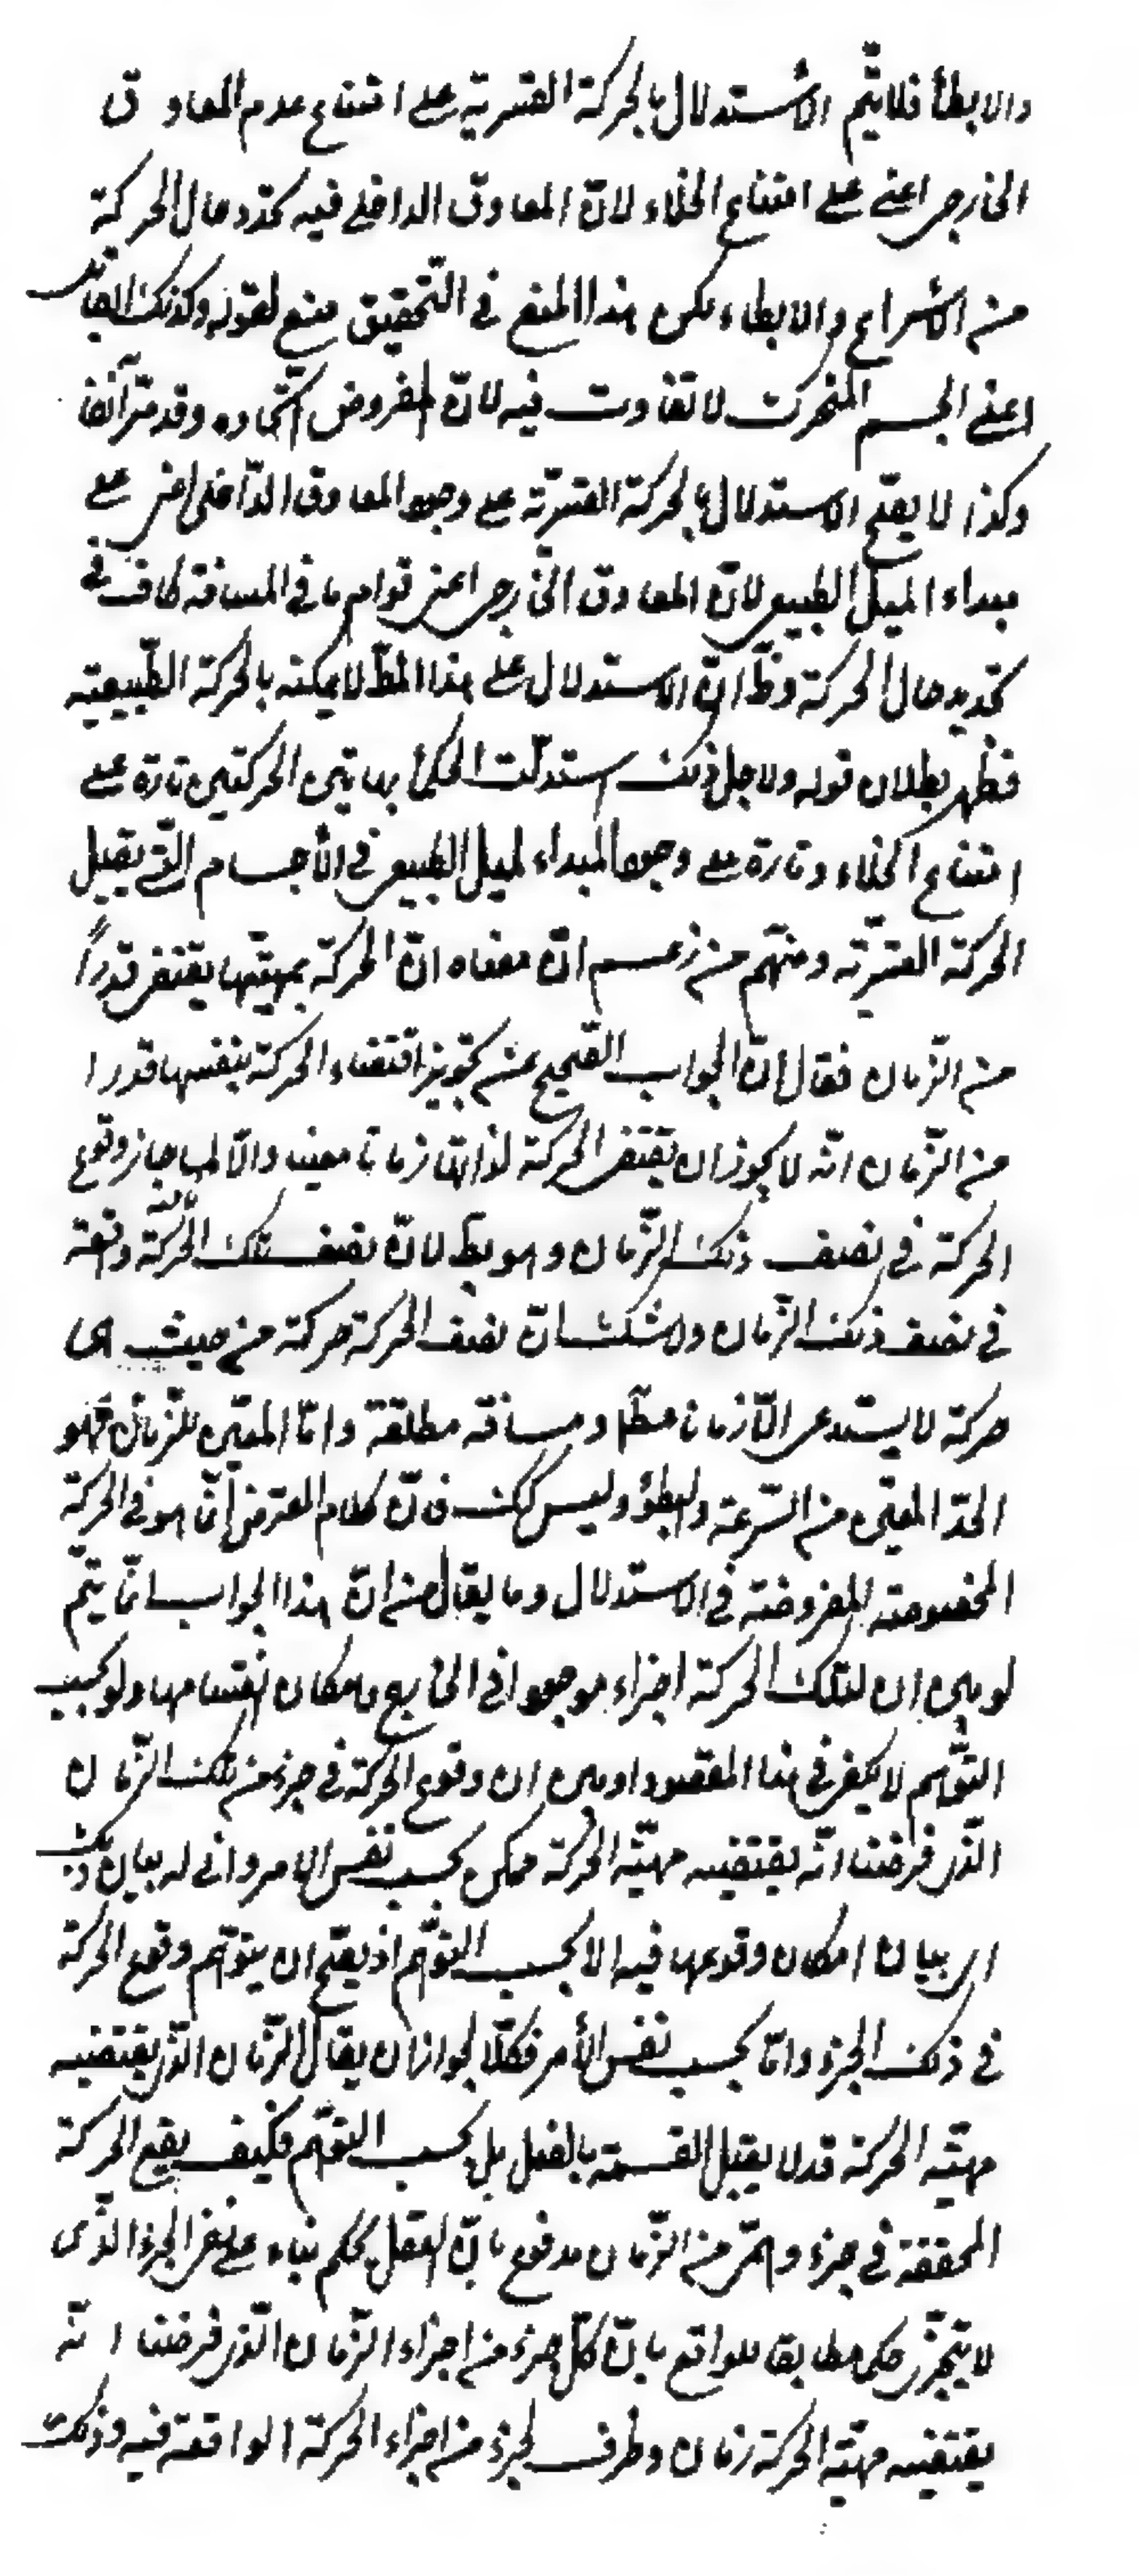 والابطأ فلا يتم الاستدلال بالحركة القسرية على امتناع عدم المعاوق
الخارجى اعنى على امتناع الخلاء لان المعاوق الداخلى فيه كمحدد حال الحركة
من الاسراع والابطاء لكن هذا المنع فى التحقيق منع لقوله وكذلك القابل
اعنى الجسم المتحرك لا تفاوت فيه لان المفروض اتحاده وقد مر آنفا
وكذا لا يصح الاستدلال بالحركة القسرية على وجود المعاوق الداخلى اعنى على
مبداء الميل الطبيعى لان المعاوق الخارجى اعنى قوام ما فى المسافة كاف فى
تحديد حال الحركة وظ ان الاستدلال على هذا المط لا يمكنه بالحركة الطبيعية
فظهر بطلان قوله ولاجل ذلك استدلت الحكماء بهاتين الحركتين تارة على
امتناع الخلاء وتارة على وجود المبداء لميل الطبيعى فى الأجسام التى يقبل
الحركة القسرية ومنهم من زعم ان معناه ان الحركة بمهيتها يقتضى قدراً
من الزمان فقال ان الجواب الصحيح عن تجويز اقتضاء الحركة بنفسها قدرا
من الزمان انه لا يجوز ان يقتضى الحركة لذاتها زمانا معينه والا لما جاز وقوع
الحركة فى نصف ذلك الزمان وهو بط لان نصف تلك الحركة واقعة
فى نصف ذلك الزمان ولا شك ان نصف الحركة حركة من حيث هى
حركة لا يستدعى الا زمانا مطلقا ومسافة مطلقة واما المعين للزمان فهو
الحد المعين من السرعة والبطؤ وليس كك فان كلام المعترض انما هو فى الحركة
المخصوصة المفروضة فى الاستدلال وما يقال من ان هذا الجواب انما يتم
لو بين ان لتلك الحركة اجزاء موجودا فى الخارج وامكان انقسامها ولو بحسب
التوهم لا يكفى فى هذا المقصود او بين ان وقوع الحركة فى جزء من تلك الزمان
الذى فرضنا انه يقتضيه مهية الحركة ممكن بحسب نفس الامر وانى له بيان ذلك
اى بيان امكان وقوعها فيه الا بحسب التوهم اذ يصح ان يتوهم وقوع الحركة
فى ذلك الجزء واما بحسب نفس الأمر فكلا لجواز ان يقال الزمان الذى يقتضيه
مهية الحركة قد لا يقبل القسمة بالفعل بل بحسب التوهم فكيف يقع الحركة
المحققة فى جزء وهمى من الزمان مدفوع بان العقل يحكم بناء على نفى الجزء الذى
لا يتجزى حكما مطابقا للواقع بان كل جزء من اجزاء الزمان الذى فرضنا انه
يقتضيه مهية الحركة زمان وظرف لجزء من اجزاء الحركة الواقعة فيه وذلك